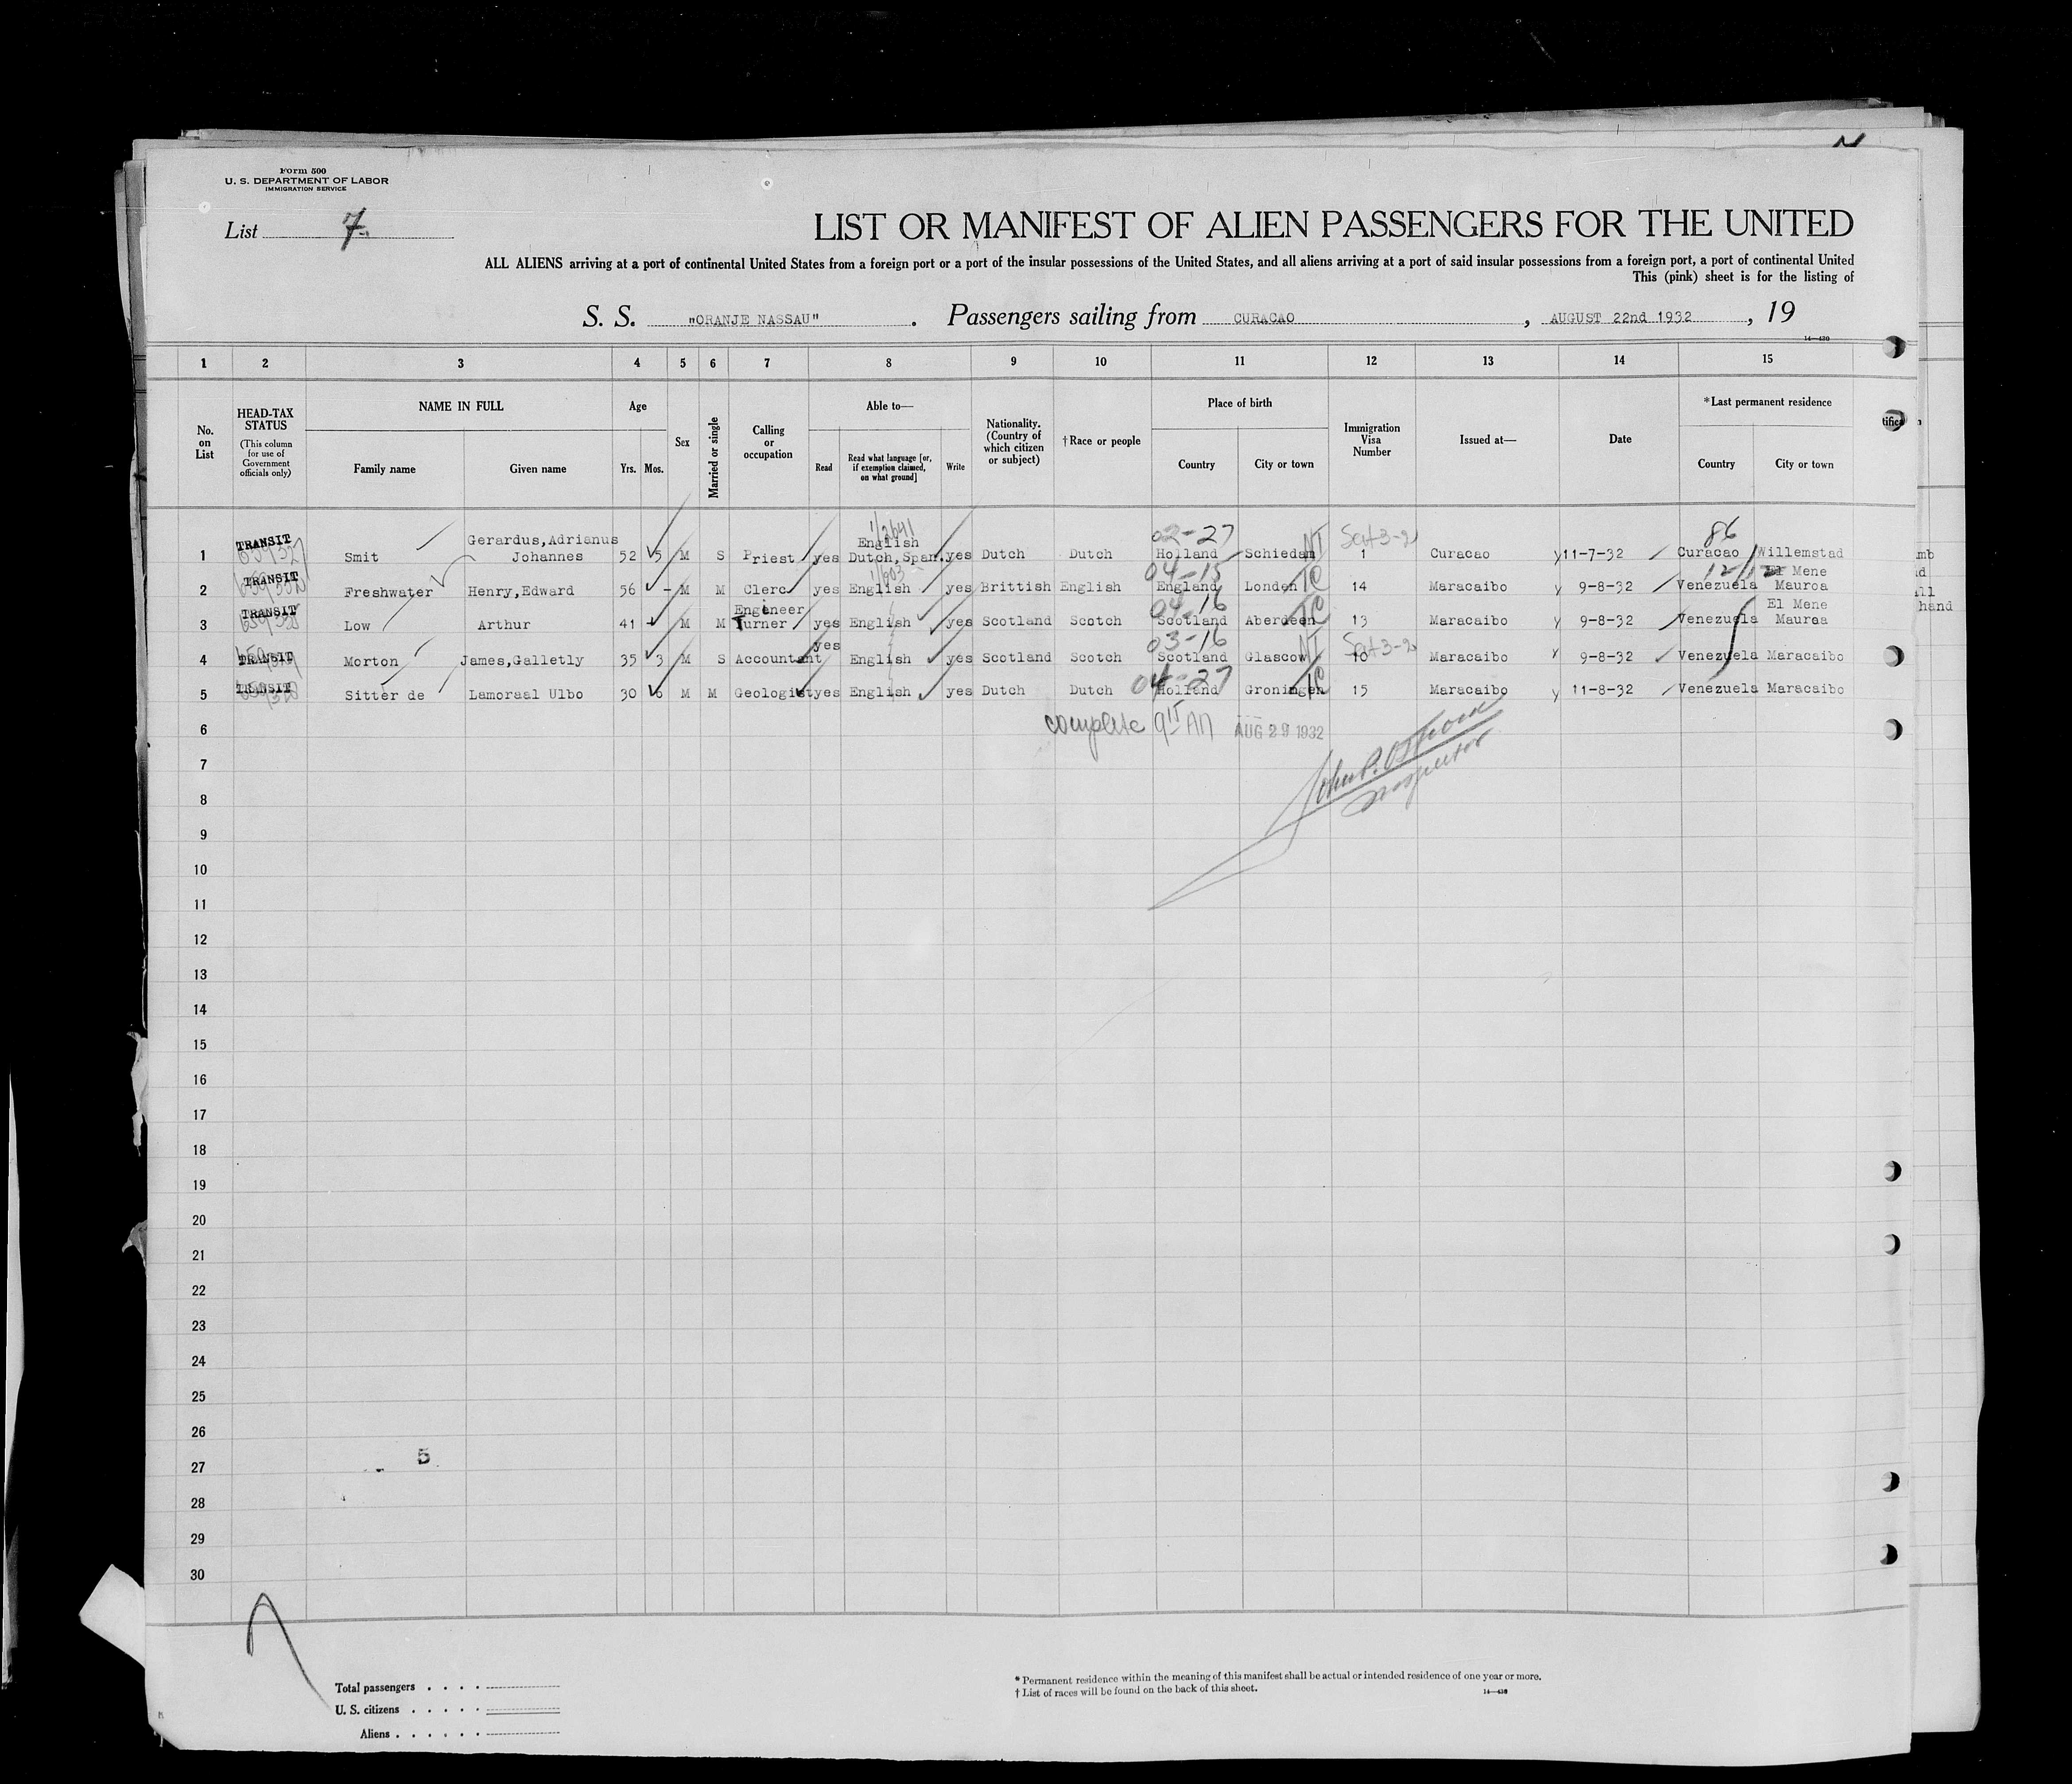 Form 500
U. S. DEPARTMENT OF LABOR
IMMIGRATION SERVICE
List 7
LIST OR MANIFEST OF ALIEN PASSENGERS FOR THE UNITED
ALL ALIENS arriving at a port of continental United States from a foreign port or a port of the insular possessions of the United States, and all aliens arriving at a port of said insular possessions from a foreign port, a port of continental United
This (pink) sheet is for the listing of
S. S. "ORANJE NASSAU". Passengers sailing from CURACAO, AUGUST 22nd 1932, 19
14—430
1 2 3 4 5 6 7 8 9 10 11 12 13 14 15
No. on List
HEAD-TAX STATUS (This column for use of Government officials only)
NAME IN FULL
Family name Given name
Age
Yrs. Mos.
Sex
Married or single
Calling or occupation
Able to—
Read Read what language [or, if exemption claimed, on what ground] Write
Nationality. (Country of which citizen or subject)
†Race or people
Place of birth
Country City or town
Immigration Visa Number
Issued at—
Date
*Last permanent residence
Country City or town
1 TRANSIT Smit Gerardus,Adrianus Johannes 52 5 M S Priest yes English Dutch,Span. yes Dutch Dutch 02-27 Holland Schiedam NT 1 Curacao 11-7-32 86 Curacao Willemstad
2 TRANSIT Freshwater Henry,Edward 56 - M M Clerc yes English yes Brittish English 04-15 England London TC 14 Maracaibo 9-8-32 Venezuela El Mene Mauroa
3 TRANSIT Low Arthur 41 - M M Engeneer Turner yes English yes Scotland Scotch 04-16 Scotland Aberdeen TC 13 Maracaibo 9-8-32 Venezuela El Mene Mauroa
4 TRANSIT Morton James,Galletly 35 3 M S Accountant yes English yes Scotland Scotch 03-16 Scotland Glascow NT 10 Maracaibo 9-8-32 Venezuela Maracaibo
5 TRANSIT Sitter de Lamoraal Ulbo 30 6 M M Geologist yes English yes Dutch Dutch 04-27 Holland Groningen TC 15 Maracaibo 11-8-32 Venezuela Maracaibo
6 complete AUG 29 1932
7
8 Inspector
9
10
11
12
13
14
15
16
17
18
19
20
21
22
23
24
25
26
5
27
28
29
30
Total passengers
U. S. citizens
Aliens
* Permanent residence within the meaning of this manifest shall be actual or intended residence of one year or more.
† List of races will be found on the back of this sheet.
14—430